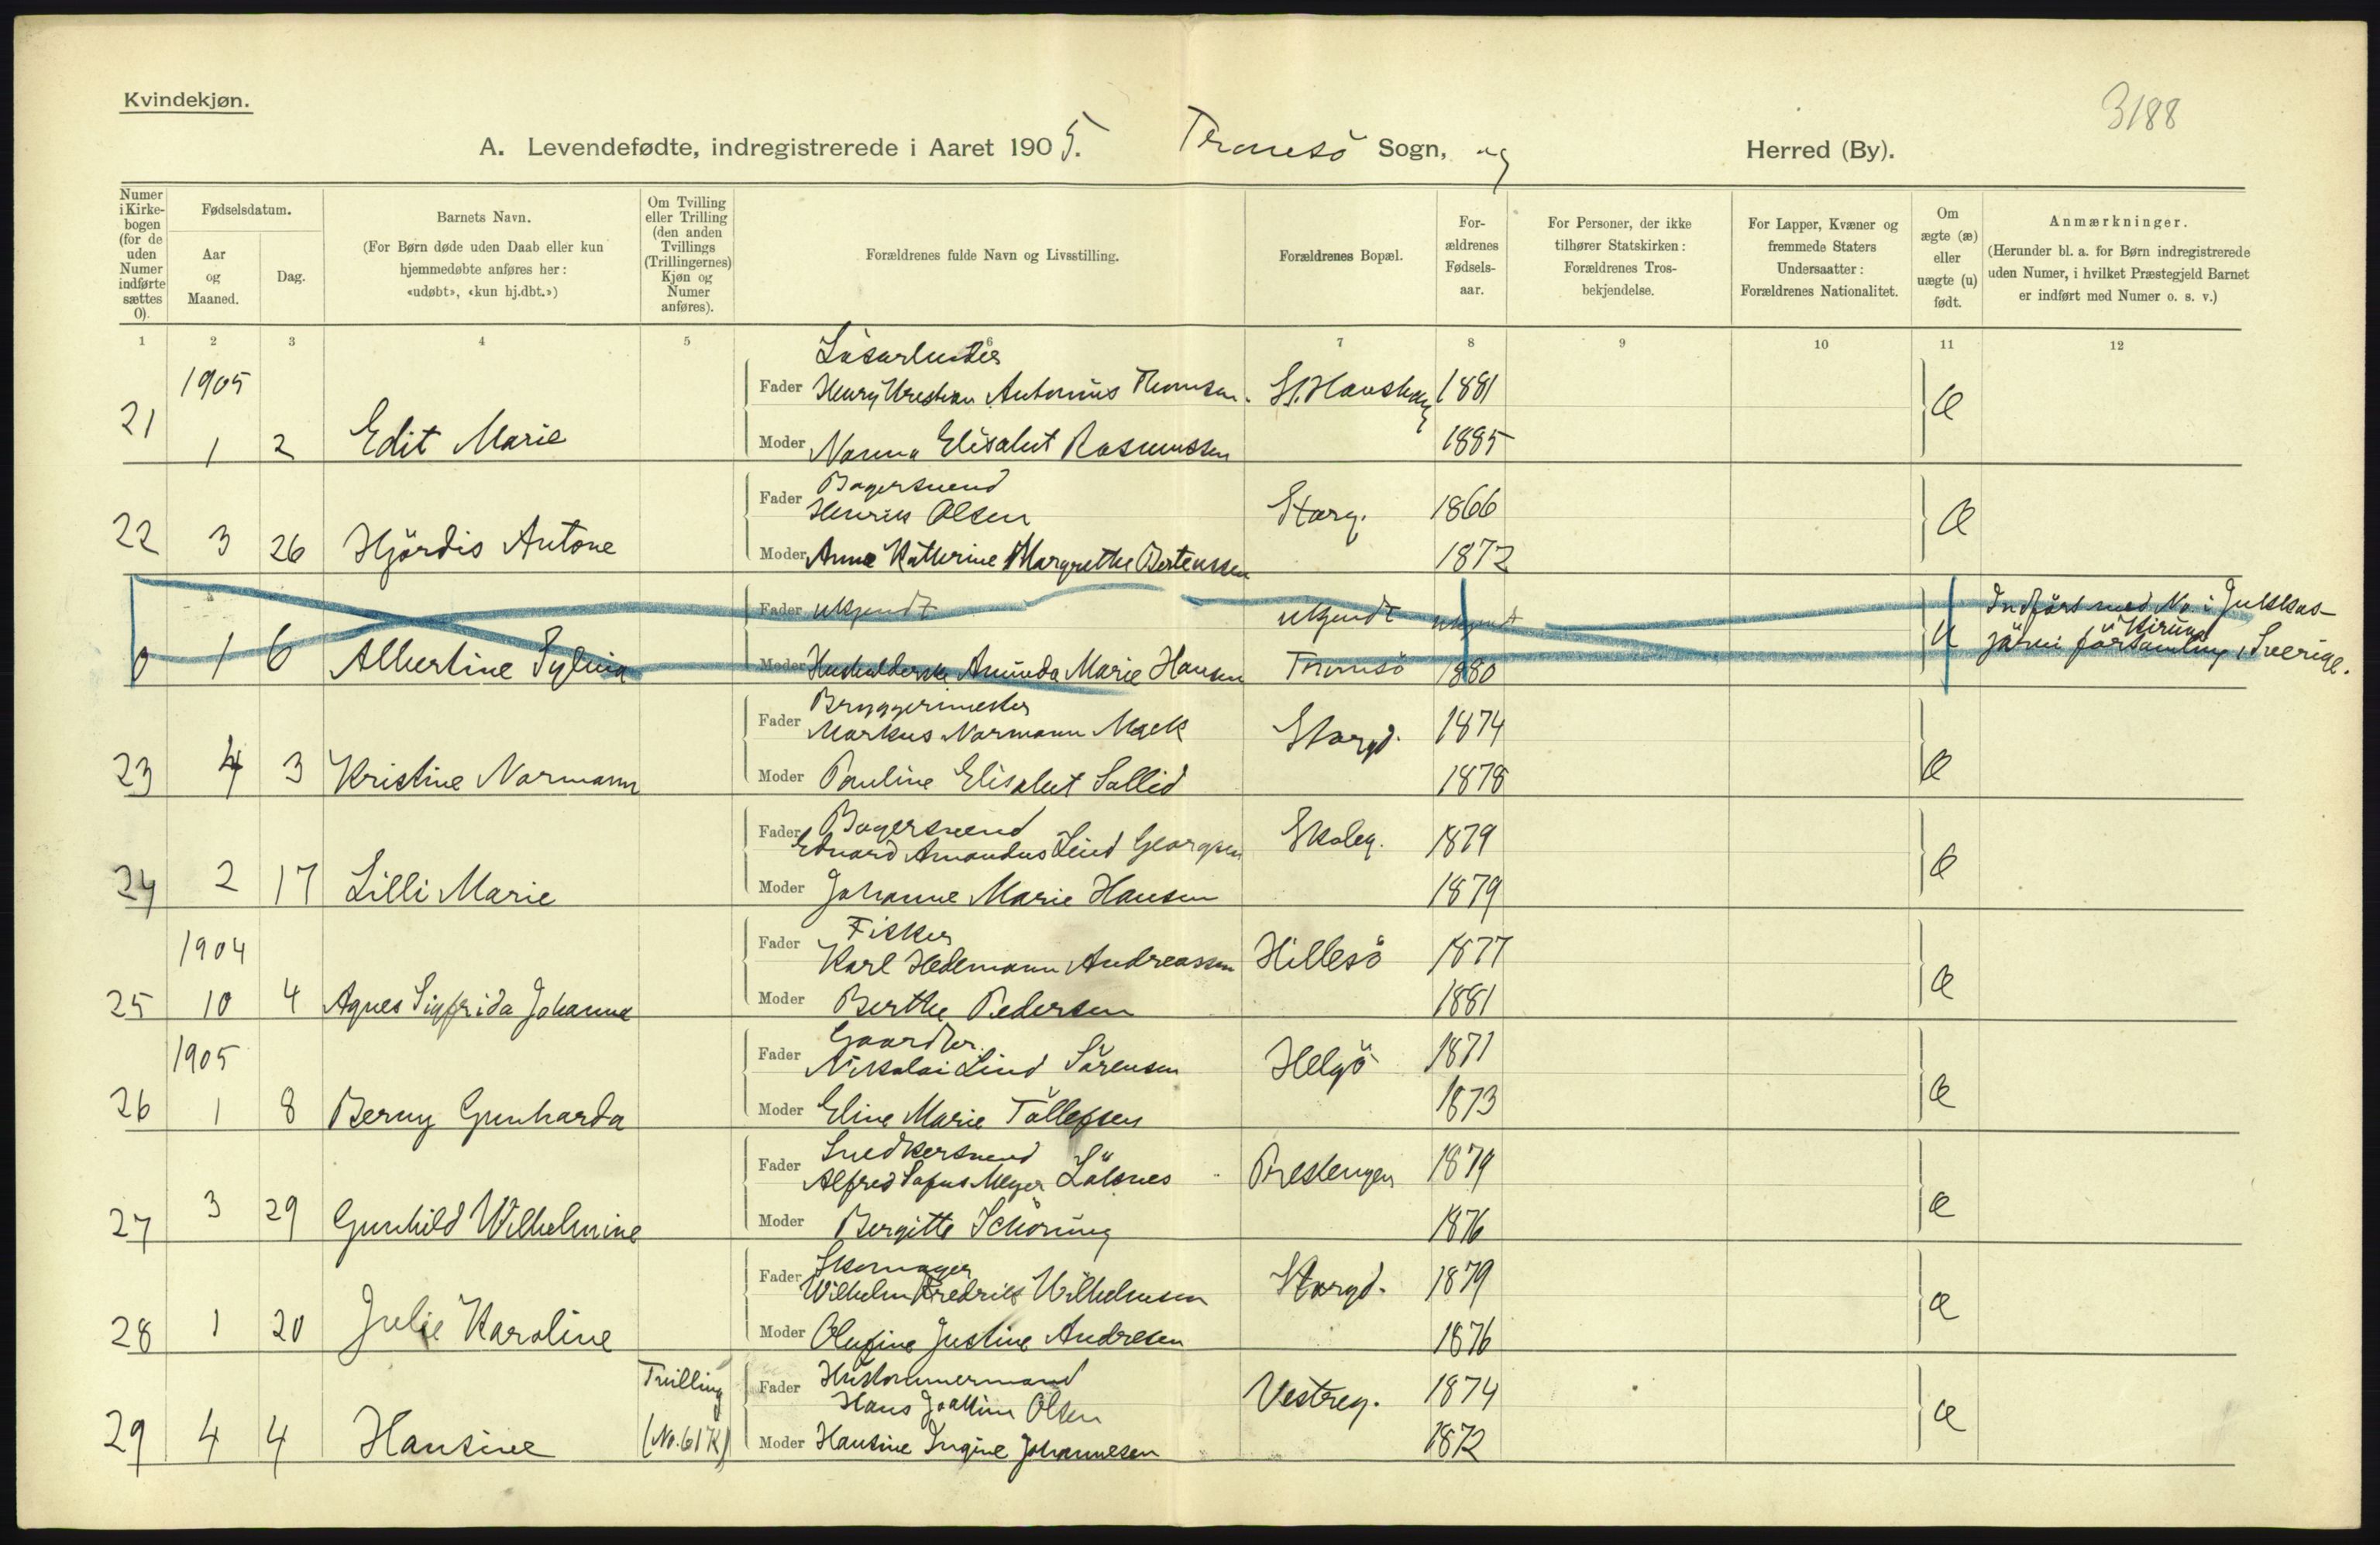 Kvindekjøn.
3188
A. Levendefødte, indregistrerede i Aaret 1905. Tromsö Sogn, og Herred (By).
Numer i Kirke-bogen (for de uden Numer indførte sættes 0).
Fødselsdatum.
Aar og Maaned.
Dag.
Barnets Navn.
(For Børn døde uden Daab eller kun hjemmedøbte anføres her: «udøbt», «kun hj.dbt.»)
Om Tvilling eller Trilling (den anden Tvillings (Trillingernes) Kjøn og Numer anføres).
Forældrenes fulde Navn og Livsstilling.
Forældrenes Bopæl.
For-ældrenes Fødsels-aar.
For Personer, der ikke tilhører Statskirken: Forældrenes Tros-bekjendelse.
For Lapper, Kvæner og fremmede Staters Undersaatter: Forældrenes Nationalitet.
Om ægte (æ) eller uægte (u) født.
Anmærkninger.
(Herunder bl. a. for Børn indregistrerede uden Numer, i hvilket Præstegjeld Barnet er indført med Numer o. s. v.)
1 2 3 4 5 6 7 8 9 10 11 12
1905
Fader Henry Antonius Thomsen. St. Hanshaug 1881 æ
21 1 2 Edit Marie
Moder Nanna Elisabet Rasmussen 1885
Bagersvend
Fader Henrik Olsen Storg. 1866 æ
22 3 26 Hjördis Antone
Moder Anna Katherine Margrethe Bertenssen 1872
Fader ukjendt ukjendt ukjendt Indført med No. i Jukkas-
0 1 6 Albertine Sylvia
Moder Husholderske Aminda Marie Hansen Tromsö 1880 u järvi församling, Kiruna, Sverige.
Bryggerimester
Fader Markus Normann Mack Storgd. 1874 æ
23 4 3 Kristine Normann
Moder Pauline Elisabet Sollid 1878
Bagersvend
Fader Edvard Amandus Lind Georgsen Skoleg. 1879 æ
24 2 17 Lilli Marie
Moder Johanne Marie Hansen 1879
1904
Fisker
Fader Karl Hedemann Andreassen Hillesö 1877 æ
25 10 4 Agnes Sigfrida Johanna
Moder Berthe Pedersen 1881
1905
Gaardbr.
Fader Nikolai Lind Sörensen Helgö 1871 æ
26 1 8 Berny Gunharda
Moder Eline Marie Töllefsen 1873
Snedkersvend
Fader Alfred Sofus Meyer Löksnes Prestengen 1879 æ
27 3 29 Gunhild Wilhelmine
Moder Bergitte Schöning 1876
Skomager
Fader Wilhelm Fredrik Wilhelmsen Storgd. 1879 æ
28 1 20 Julie Karoline
Moder Olufine Justine Andresen 1876
Tvilling Hustømmermand
Fader Hans Joakim Olsen Vestreg. 1874 æ
29 4 4 Hansine (No. 61 K)
Moder Hansine Ingine Johannesen 1872